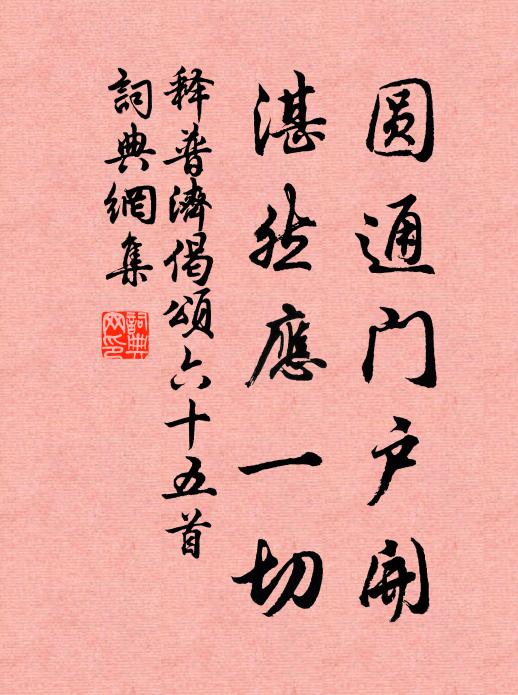 圆通门户開
湛然應一切
释普濟偈頌六十五首
詞典網集
詞典網印